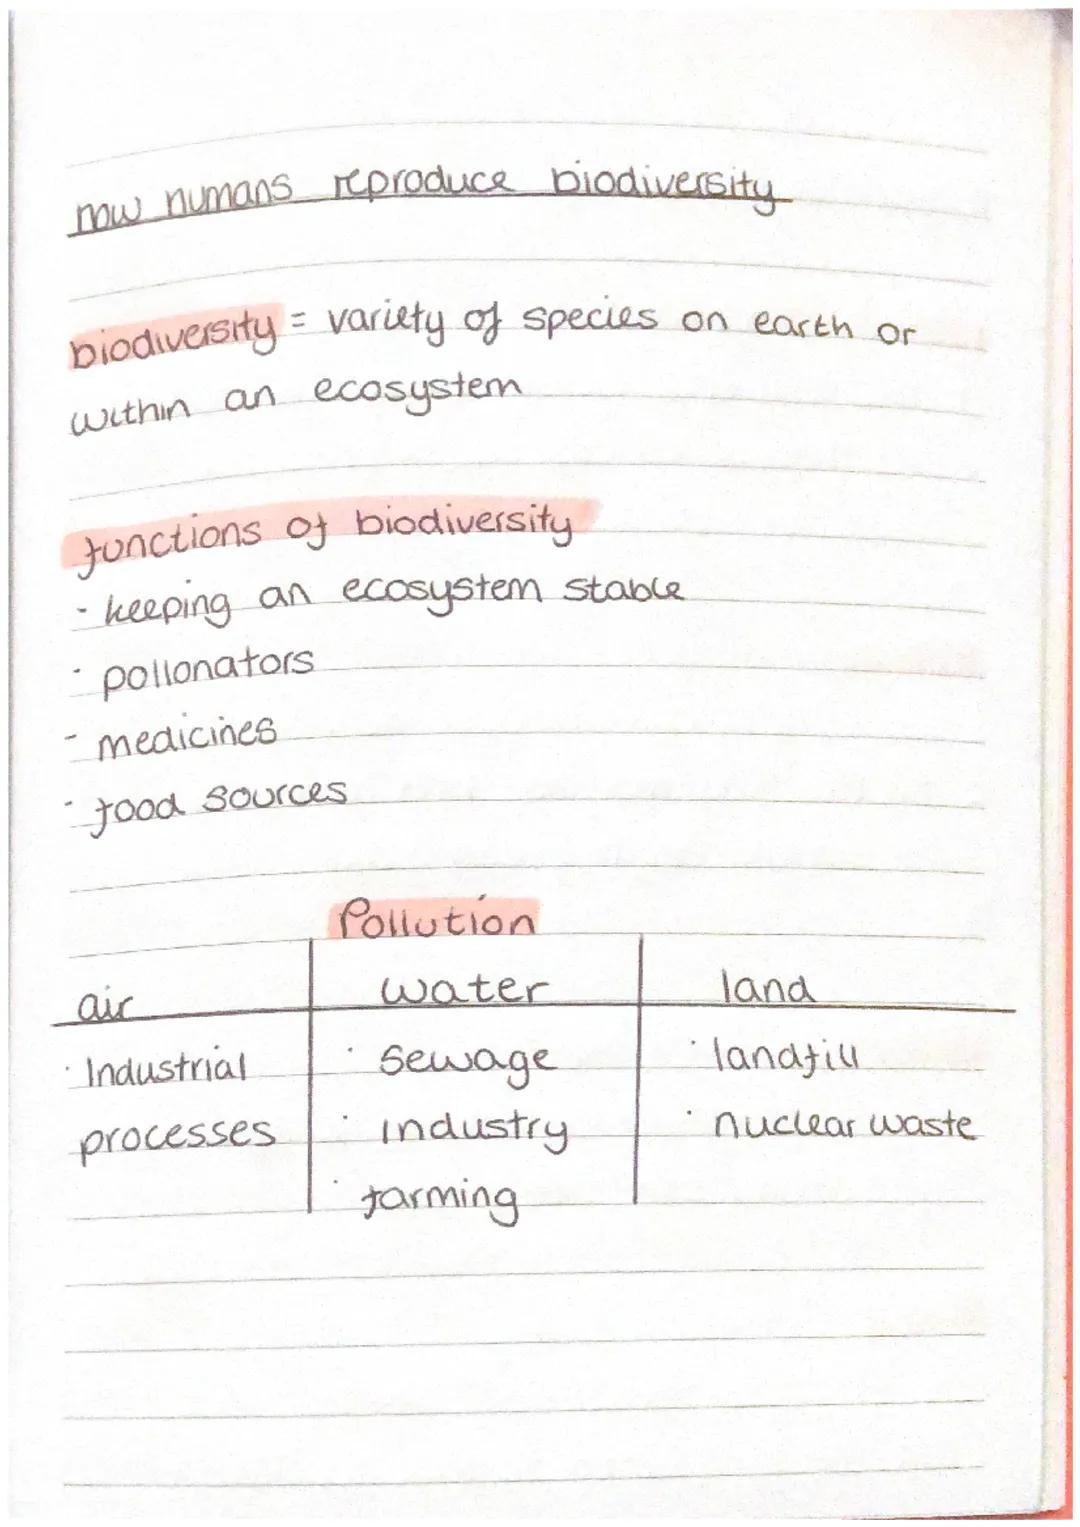 how humans reproduce biodiversity
biodiversity = variety of species on earth or
within an ecosystem
functions of biodiversity
- keeping an ecosystem stable
· pollonators
- medicines
· food sources
Pollution
air water land
· Industrial · sewage · landfill
processes · industry · nuclear waste
· farming